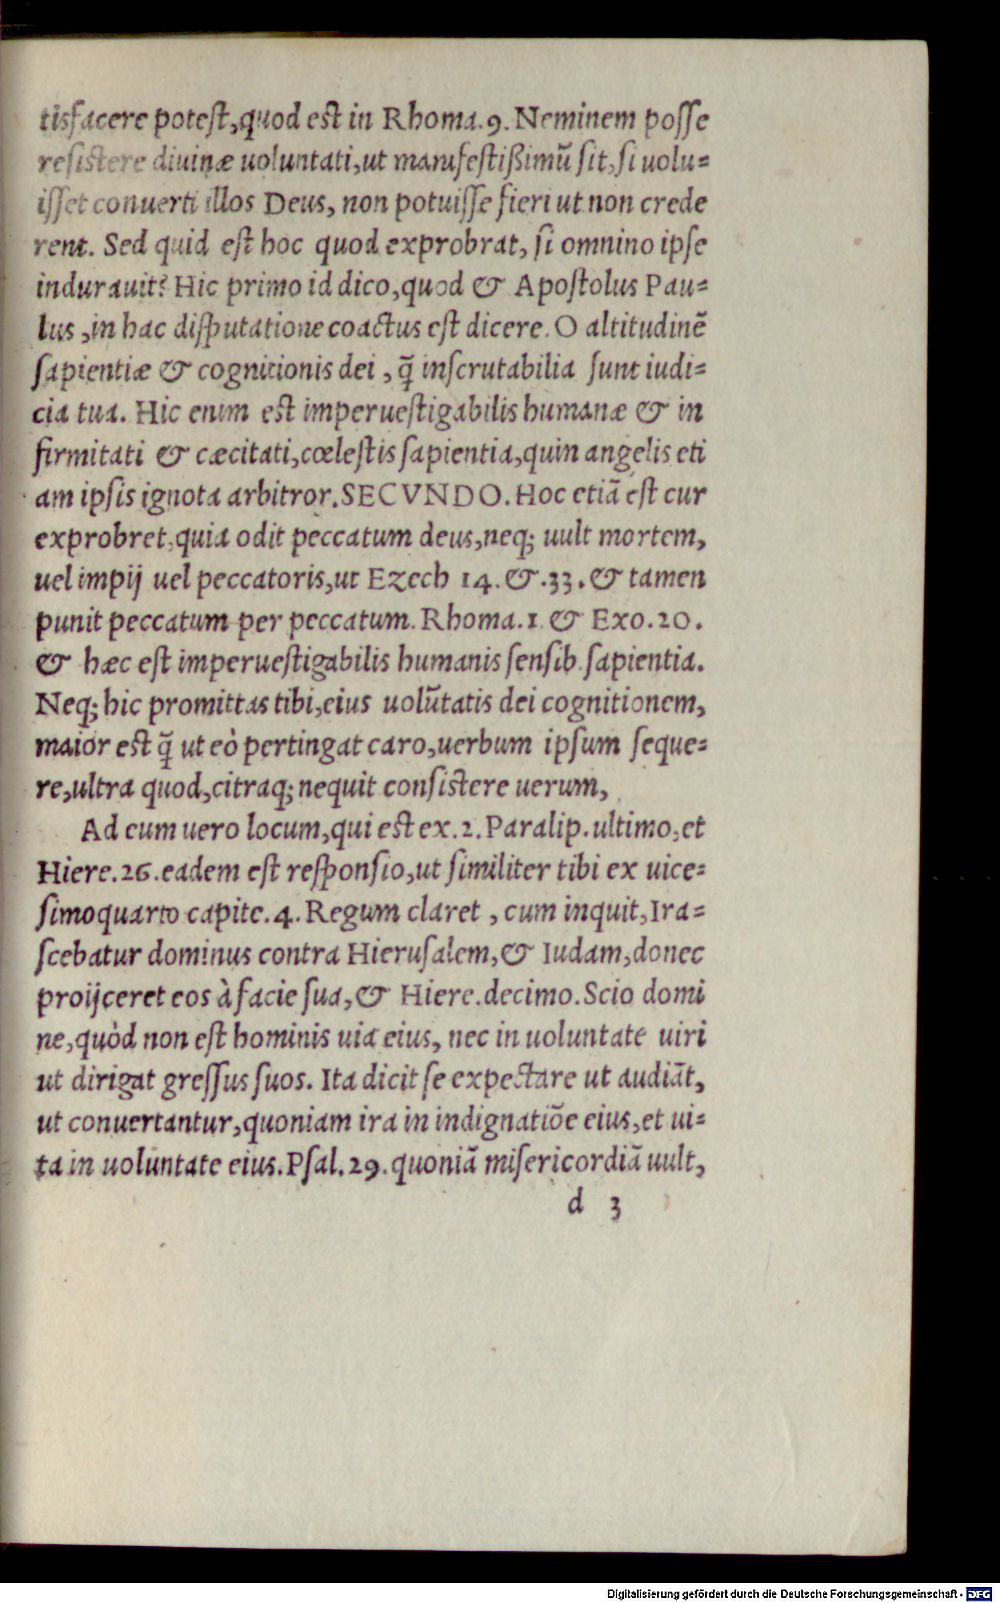 tisfacere potest,quod est in Rhoma.9. Neminem posse
resistere diuinæ uoluntati,ut manifestißimũ sit,si uolu=
isset conuerti illos Deus, non potuisse fieri ut non crede
rent. Sed quid est hoc quod exprobrat, si omnino ipse
indurauit? Hic primo id dico,quod & Apostolus Pau=
lus ,in hac disputatione coactus est dicere. O altitudinẽ
sapientiæ & cognitionis dei , q̃ inscrutabilia sunt iudi=
cia tua. Hic enim est imperuestigabilis humanæ & in
firmitati & cæcitati,cœlestis sapientia,quin angelis eti
am ipsis ignota arbitror.SECVNDO. Hoc etiã est cur
exprobret,quia odit peccatum deus,neq; uult mortem,
uel impij uel peccatoris,ut Ezech 14. &.33. & tamen
punit peccatum per peccatum. Rhoma.1 & Exo.20.
& hæc est imperuestigabilis humanis sensib. sapientia.
Neq; hic promittas tibi,eius uolũtatis dei cognitionem,
maior est q̃ ut eò pertingat caro,uerbum ipsum seque=
re,ultra quod,citraq; nequit consistere uerum,
Ad cum uero locum,qui est ex.2. Paralip.ultimo,et
Hiere.26.eadem est responsio,ut similiter tibi ex uice=
simoquarto capite.4. Regum claret , cum inquit,Ira=
scebatur dominus contra Hierusalem,& Iudam,donec
proijceret eos à facie sua,& Hiere.decimo.Scio domi
ne,quòd non est hominis uia eius, nec in uoluntate uiri
ut dirigat gressus suos. Ita dicit se expectare ut audiãt,
ut conuertantur,quoniam ira in indignatiõe eius,et ui=
ta in uoluntate eius.Psal.29.quoniã misericordiã uult,
d 3
Digitalisierung gefördert durch die Deutsche Forschungsgemeinschaft - DFG